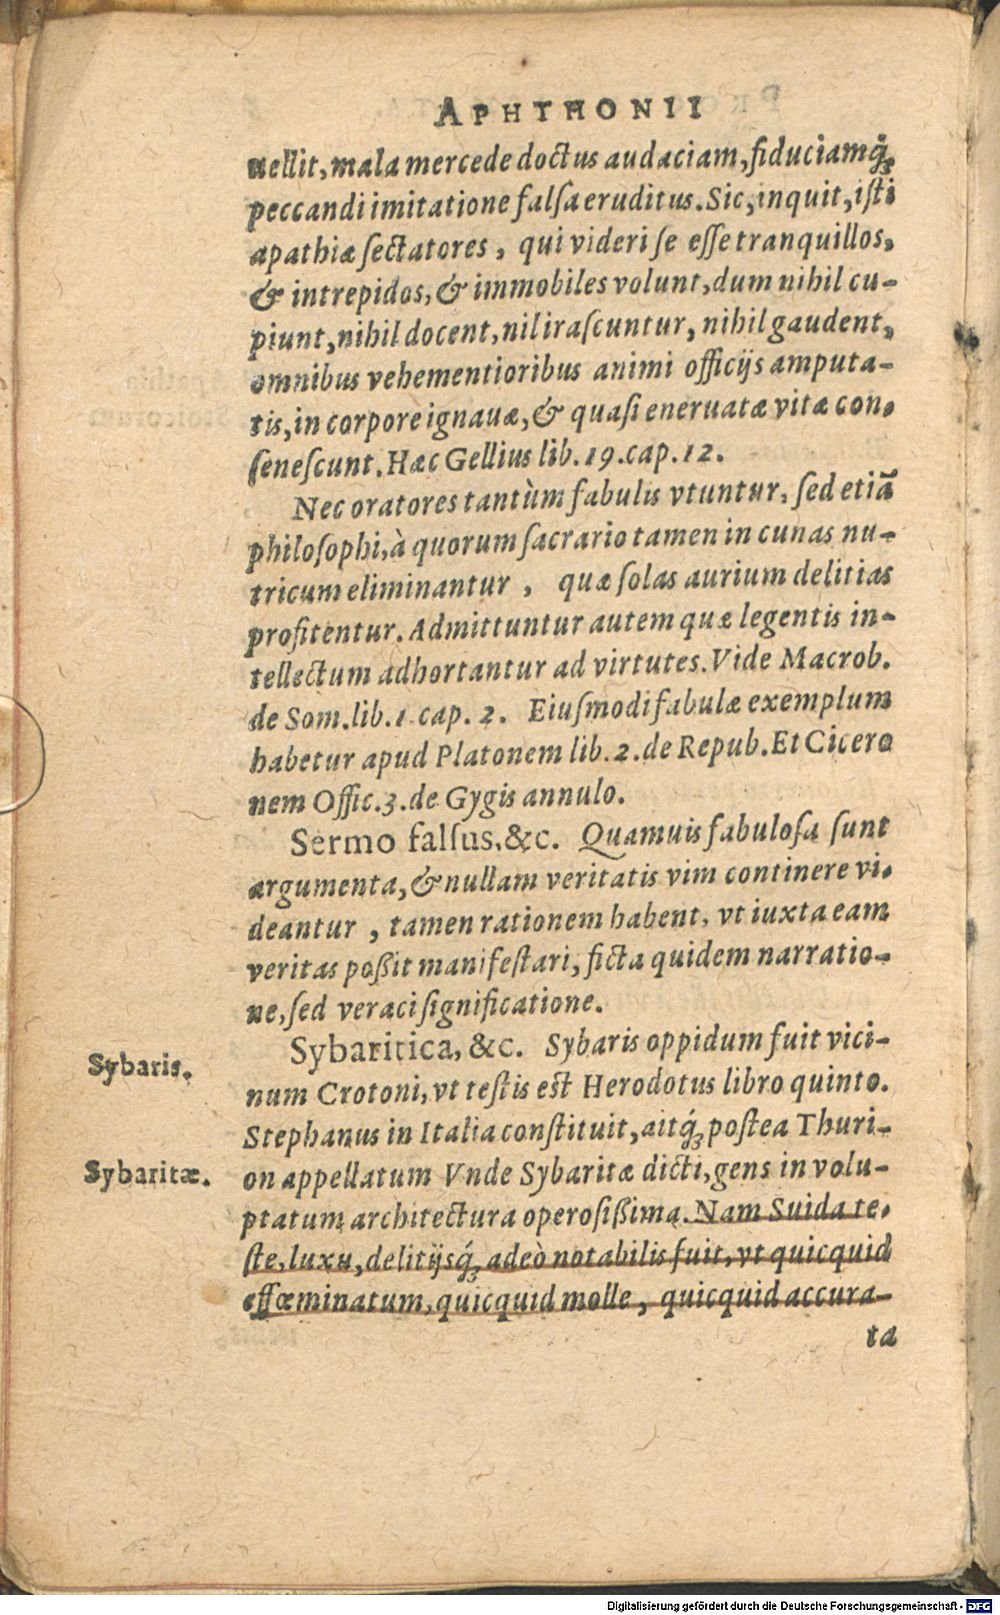 APHTHONII
uellit, mala mercede doctus audaciam, fiduciamq́;
peccandi imitatione falſa eruditus. Sic, inquit, iſti
apathiæ ſectatores, qui videri ſe eſſe tranquillos,
& intrepidos, & immobiles volunt, dum nihil cu-
piunt, nihil docent, nil iraſcuntur, nihil gaudent,
omnibus vehementioribus animi officijs amputa-
tis, in corpore ignauæ, & quaſi eneruatæ vitæ con-
ſeneſcunt. Hæc Gellius lib. 19. cap. 12.
Nec oratores tantùm fabulis vtuntur, ſed etiã
philoſophi, à quorum ſacrario tamen in cunas nu-
tricum eliminantur, quæ ſolas aurium delitias
profitentur. Admittuntur autem quæ legentis in-
tellectum adhortantur ad virtutes. Vide Macrob.
de Som. lib. 1 cap. 2. Eiuſmodi fabulæ exemplum
habetur apud Platonem lib. 2. de Repub. Et Cicero
nem Offic. 3. de Gygis annulo.
Sermo falſus, &c. Quamuis fabuloſa ſunt
argumenta, & nullam veritatis vim continere vi-
deantur, tamen rationem habent, vt iuxta eam
veritas poßit manifeſtari, ficta quidem narratio-
ne, ſed veraci ſignificatione.
Sybaritica, &c. Sybaris oppidum fuit vici-
Sybaris.
num Crotoni, vt teſtis eſt Herodotus libro quinto.
Stephanus in Italia conſtituit, aitq́; poſtea Thuri-
Sybaritæ.
on appellatum Vnde Sybaritæ dicti, gens in volu-
ptatum architectura operoſißima. Nam Suida te-
ſte, luxu, delitijsq́; adeò notabilis fuit, vt quicquid
effœminatum, quicquid molle, quicquid accura-
ta
Digitalisierung gefördert durch die Deutsche Forschungsgemeinschaft - DFG